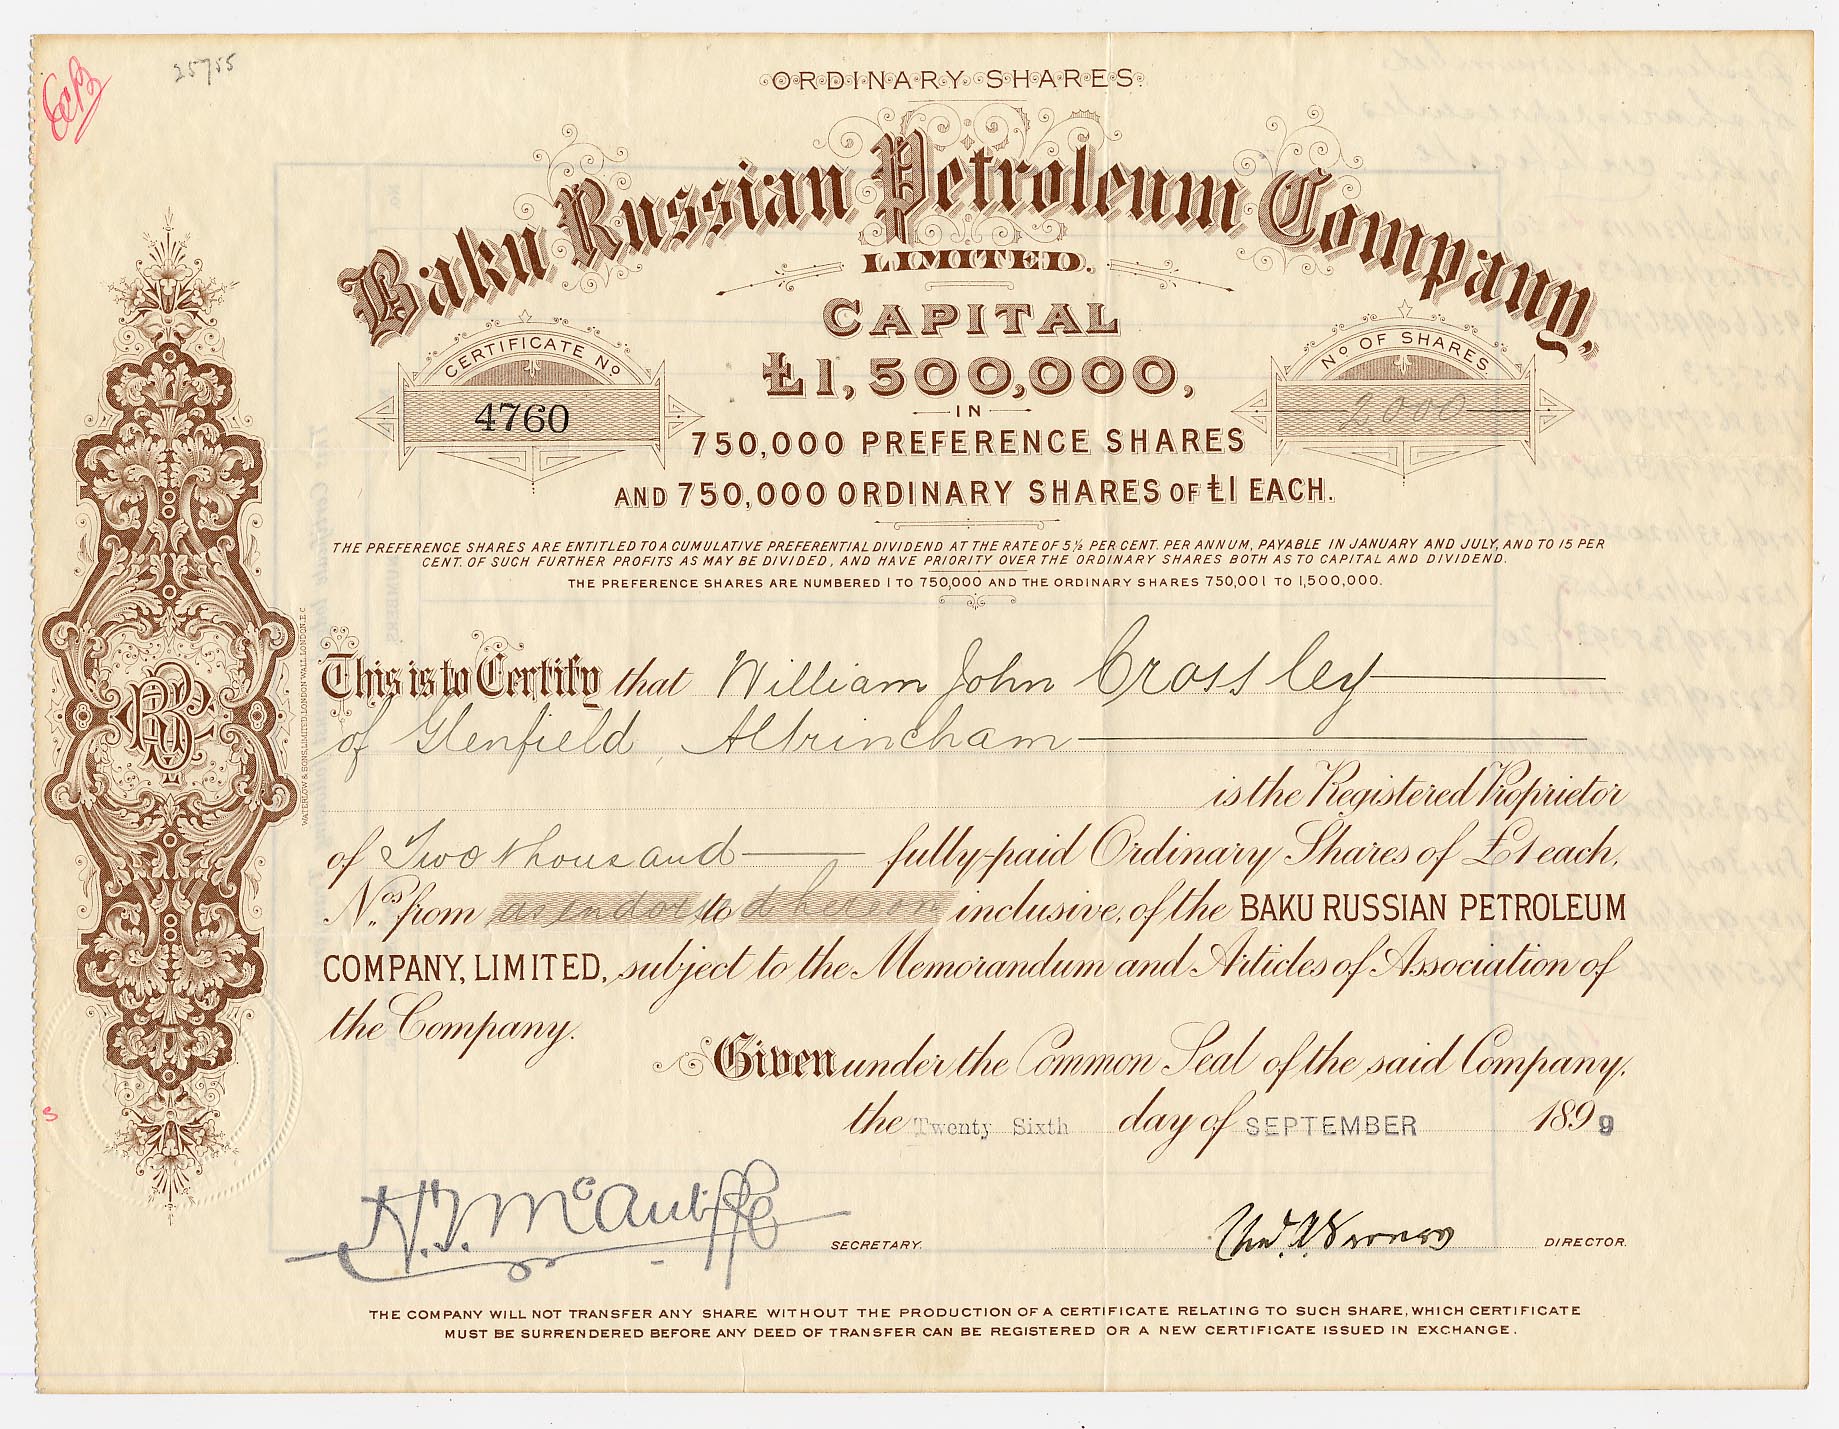 25755
ORDINARY SHARES.
Baku Russian Petroleum Company,
LIMITED.
CAPITAL
£1,500,000,
CERTIFICATE No
4760
No OF SHARES
2000
IN
750,000 PREFERENCE SHARES
AND 750,000 ORDINARY SHARES OF £1 EACH.
THE PREFERENCE SHARES ARE ENTITLED TO A CUMULATIVE PREFERENTIAL DIVIDEND AT THE RATE OF 5½ PER CENT. PER ANNUM, PAYABLE IN JANUARY AND JULY, AND TO 15 PER
CENT. OF SUCH FURTHER PROFITS AS MAY BE DIVIDED, AND HAVE PRIORITY OVER THE ORDINARY SHARES BOTH AS TO CAPITAL AND DIVIDEND.
THE PREFERENCE SHARES ARE NUMBERED 1 TO 750,000 AND THE ORDINARY SHARES 750,001 TO 1,500,000.
This is to Certify that William John Crossley
of Glenfield, Altrincham
is the Registered Proprietor
of Two thousand fully-paid Ordinary Shares of £1 each,
Nos. from as endorsed to hereon inclusive, of the BAKU RUSSIAN PETROLEUM
COMPANY, LIMITED, subject to the Memorandum and Articles of Association of
the Company.
Given under the Common Seal of the said Company,
the Twenty Sixth day of SEPTEMBER 1899
H.J. McAuliffe SECRETARY.
DIRECTOR.
THE COMPANY WILL NOT TRANSFER ANY SHARE WITHOUT THE PRODUCTION OF A CERTIFICATE RELATING TO SUCH SHARE, WHICH CERTIFICATE
MUST BE SURRENDERED BEFORE ANY DEED OF TRANSFER CAN BE REGISTERED OR A NEW CERTIFICATE ISSUED IN EXCHANGE.
WATERLOW & SONS, LIMITED, LONDON WALL, LONDON, E.C